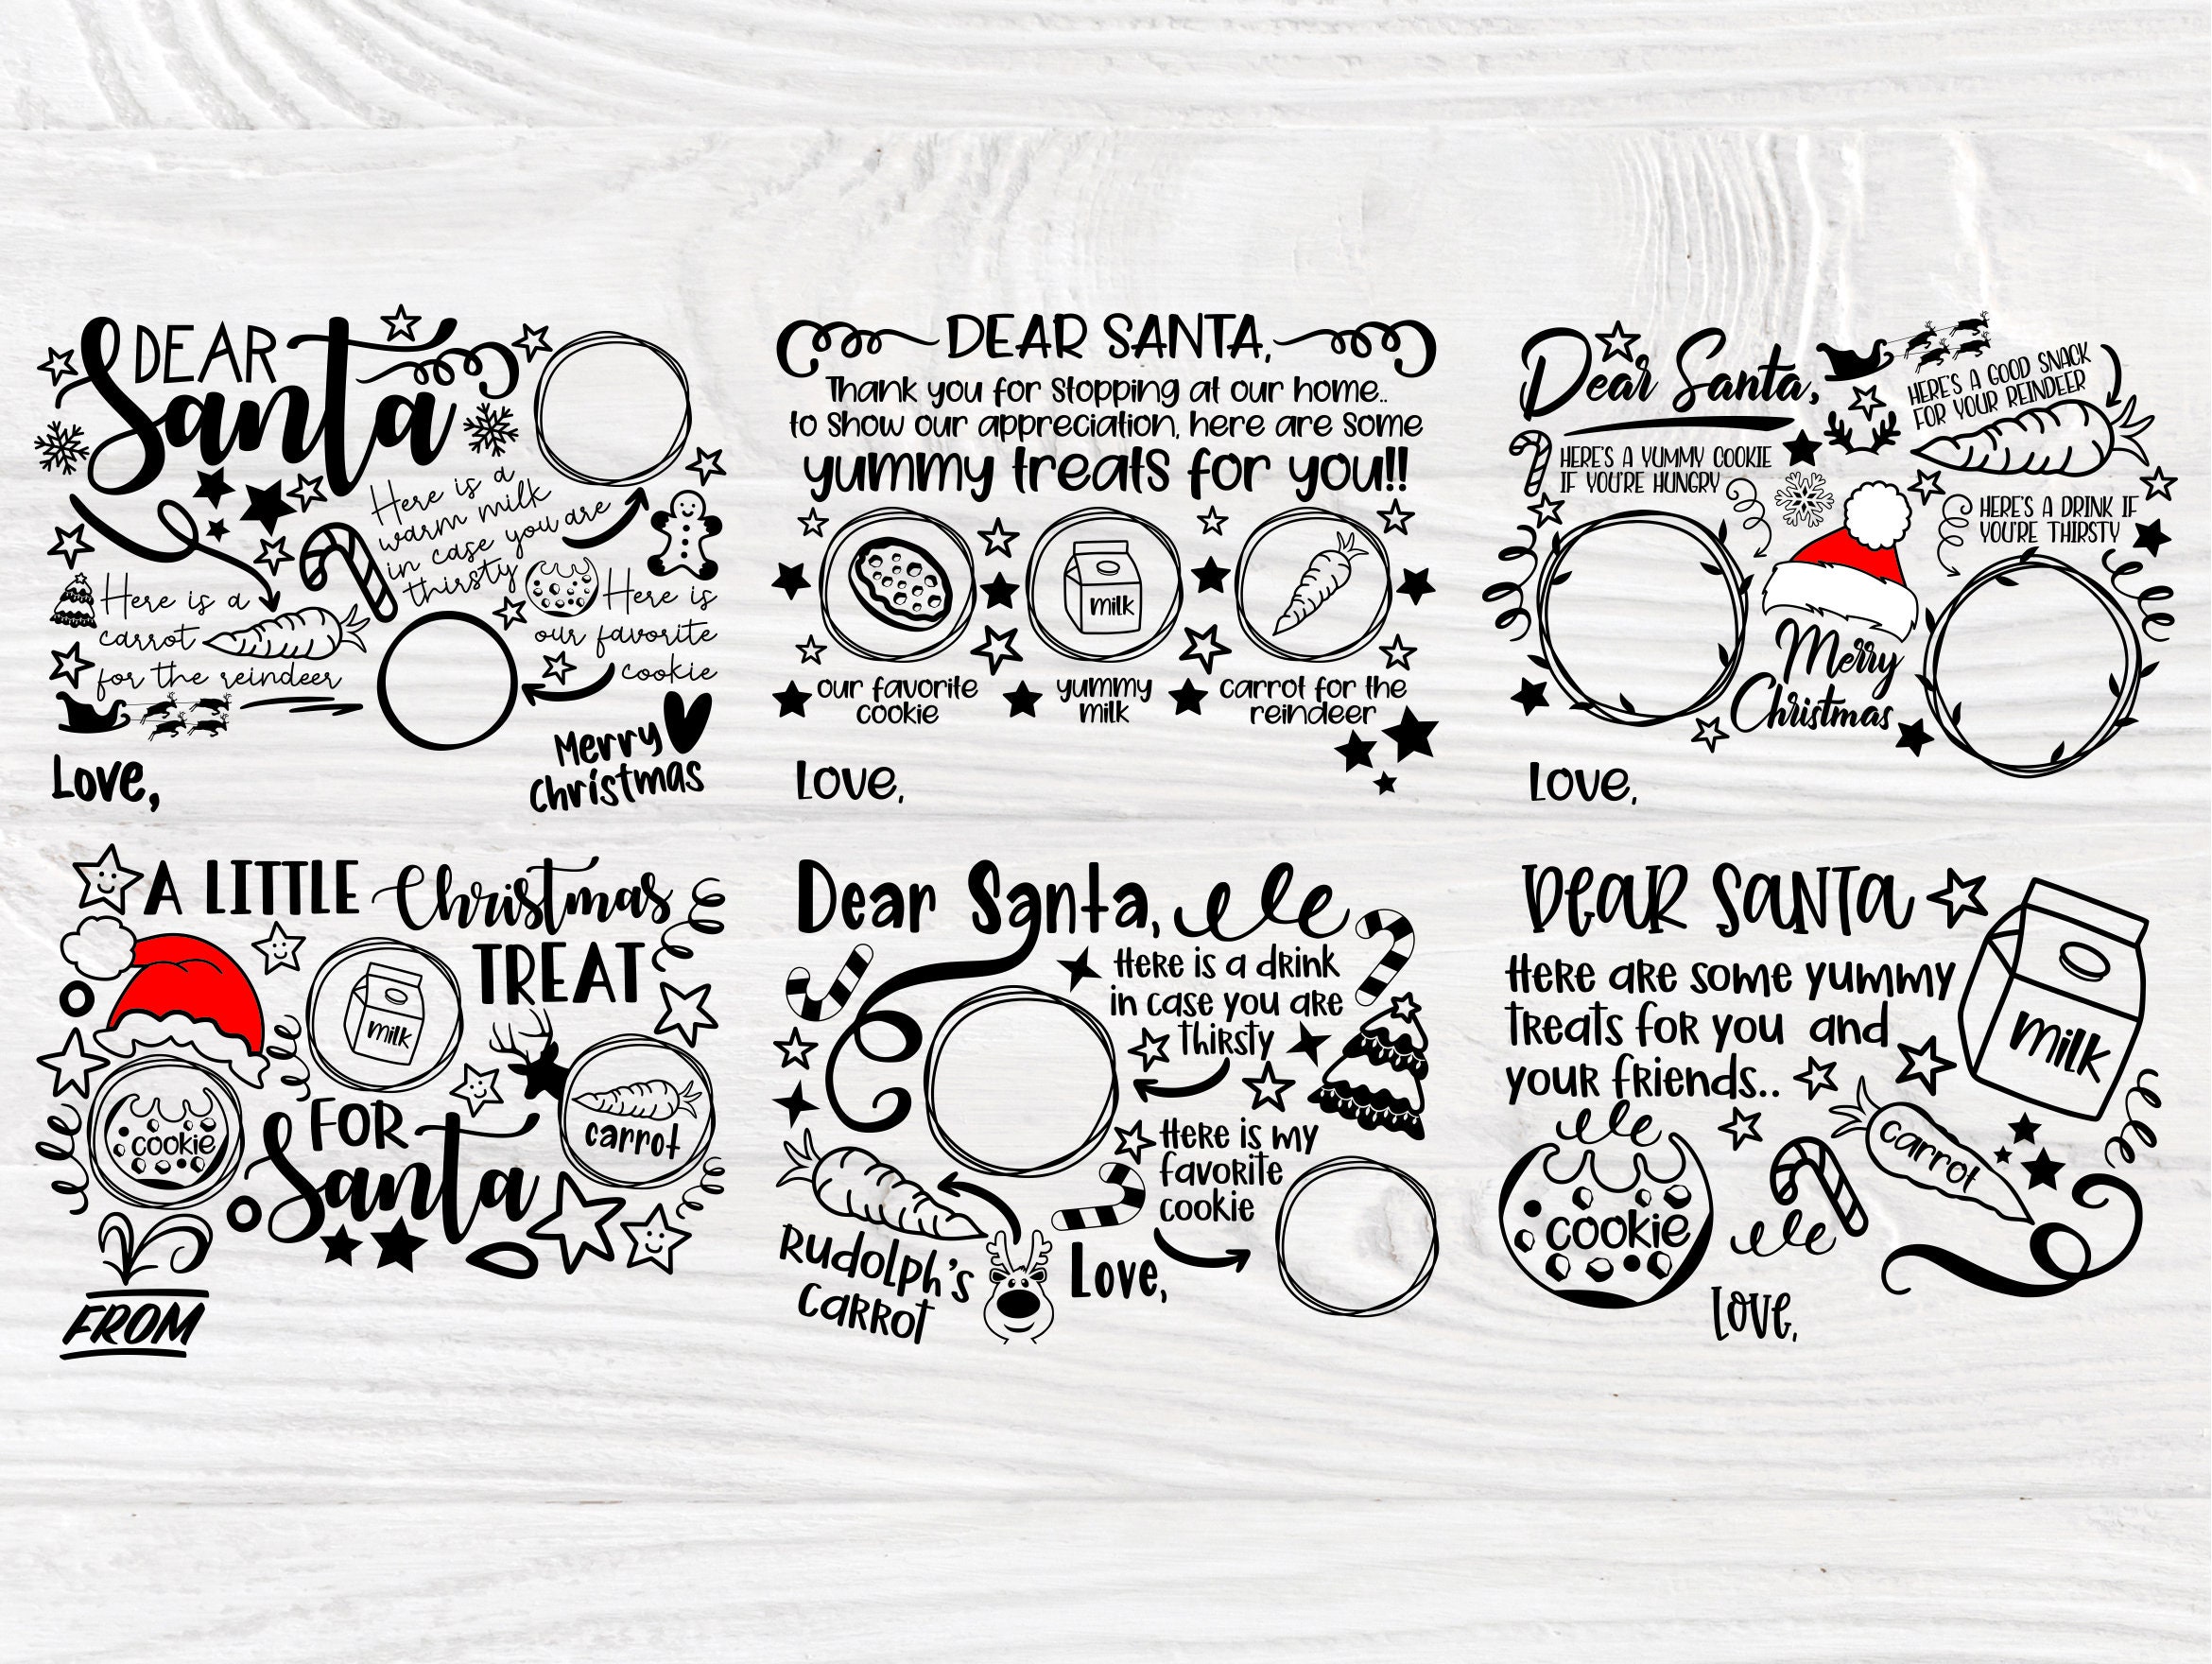 DEAR
Santa
Here is a
warm milk
in case you are
thirsty
Here is a
carrot
for the reindeer
Here is
our favorite
cookie
Merry
Christmas
Love,
DEAR SANTA,
Thank you for stopping at our home..
to show our appreciation, here are some
yummy treats for you!!
milk
our favorite
cookie
yummy
milk
carrot for the
reindeer
Love,
Dear Santa,
HERE'S A GOOD SNACK
FOR YOUR REINDEER
HERE'S A YUMMY COOKIE
IF YOU'RE HUNGRY
HERE'S A DRINK IF
YOU'RE THIRSTY
Merry
Christmas
Love,
A LITTLE Christmas
TREAT
milk
cookie
FOR
Santa
carrot
FROM
Dear Santa,
Here is a drink
in case you are
thirsty
Here is my
favorite
cookie
Rudolph's
carrot
Love,
Dear Santa
Here are some yummy
treats for you and
your friends..
milk
carrot
cookie
Love,